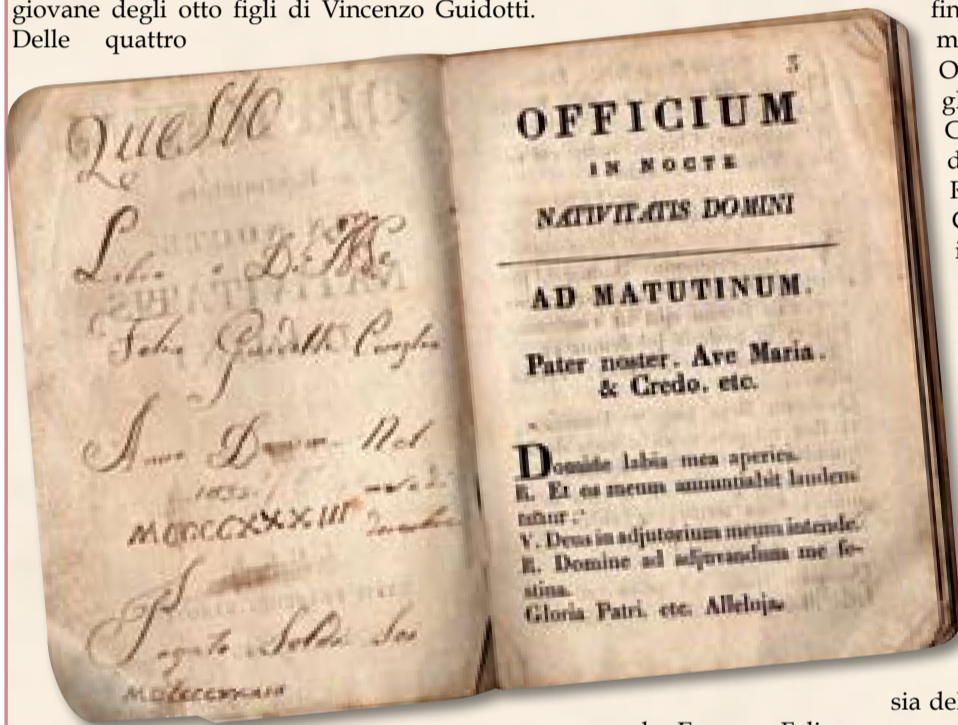 giovane degli otto figli di Vincenzo Guidotti.
Delle quattro
Questo
Libro è D.
Felice Guidotti
Anno Domini Nel
MDCCCXXXIII
Pagato Soldi
3
OFFICIUM
IN NOCTE
NATIVITATIS DOMINI
AD MATUTINUM.
Pater noster, Ave Maria.
& Credo, etc.
Domine labia mea aperies.
R. Et os meum annuntiabit laudem
tuam.
V. Deus in adjutorium meum intende.
R. Domine ad adjuvandum me fe-
stina.
Gloria Patri, etc. Alleluja.
fin
m
O
gl
C
d
F
C
i
sia del